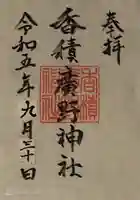 奉拝
香積廣野神社
令和五年九月三十日